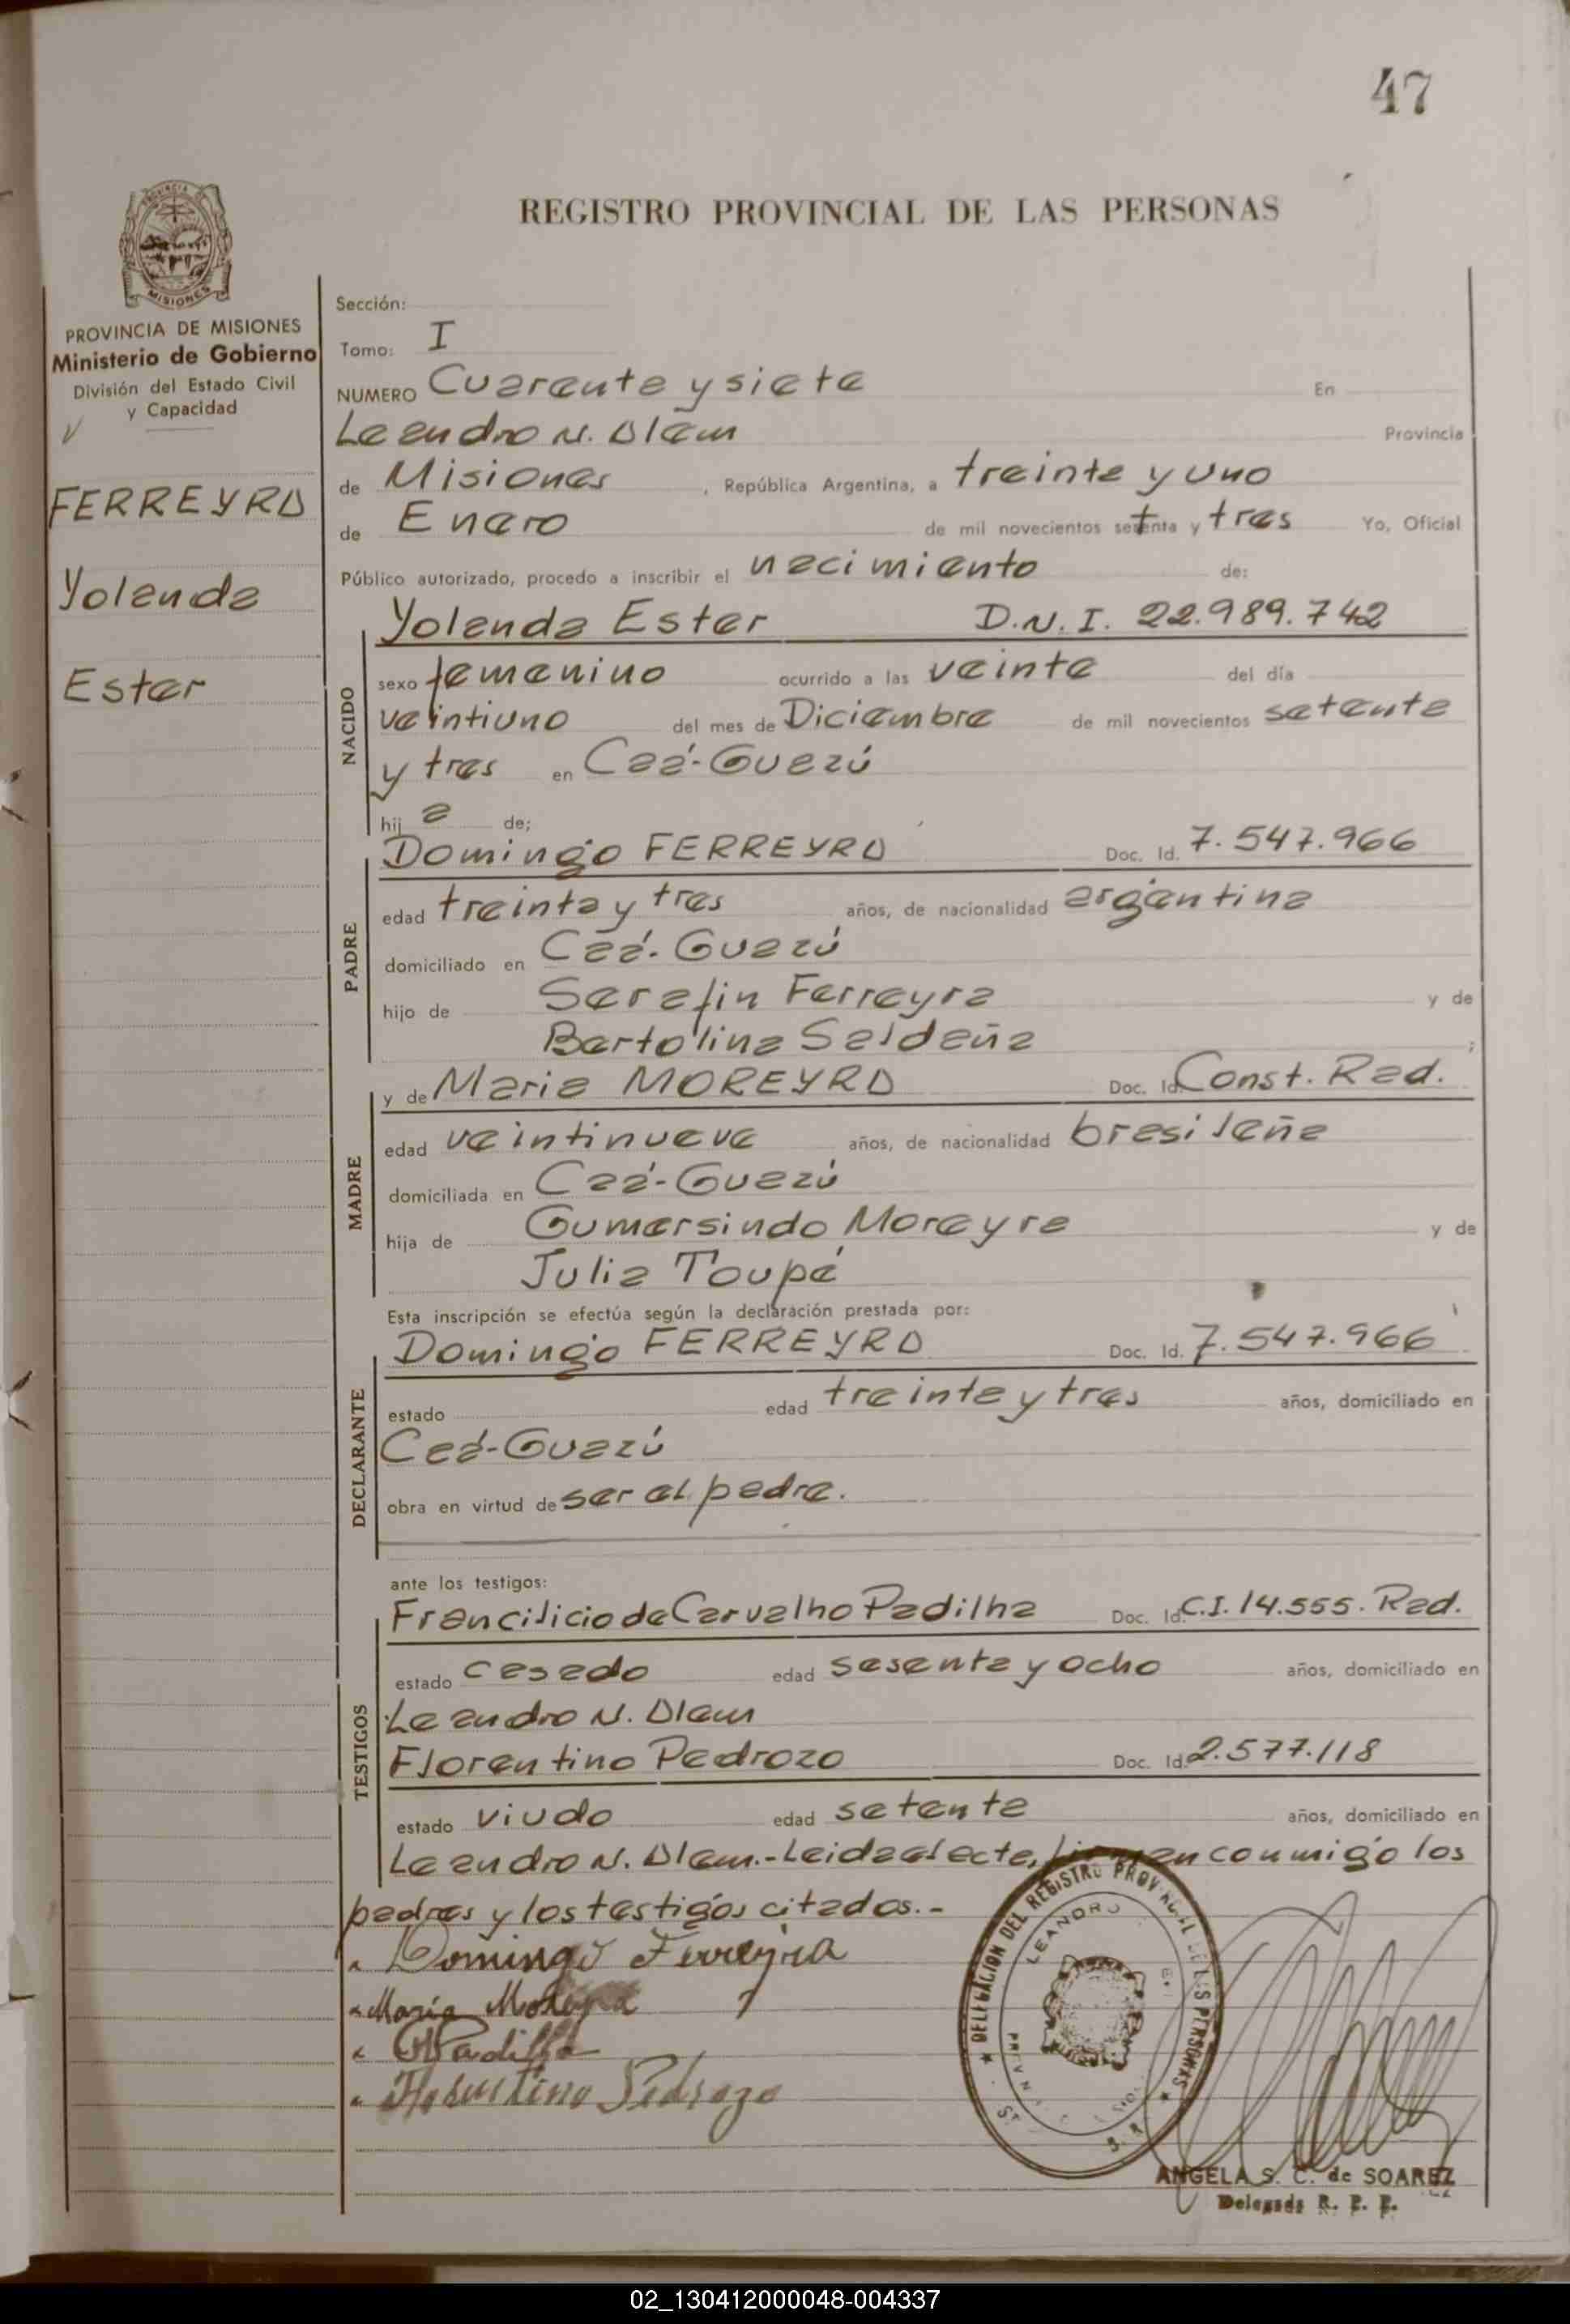 47
REGISTRO PROVINCIAL DE LAS PERSONAS
MISIONES
PROVINCIA DE MISIONES
Ministerio de Gobierno
División del Estado Civil
y Capacidad
FERREYRA
Yolanda
Ester
Sección:
Tomo: I
NUMERO Cuarenta y siete En
Leandro N. Alem Provincia
de Misiones, República Argentina, a treinta y uno
de Enero de mil novecientos setenta y tres Yo, Oficial
Público autorizado, procedo a inscribir el nacimiento de:
NACIDO
Yolanda Ester D.N.I. 22.989.742
sexo femenino ocurrido a las veinte del día
veintiuno del mes de Diciembre de mil novecientos setenta
y tres en Caá-Guazú
hija de;
PADRE
Domingo FERREYRA Doc. Id. 7.547.966
edad treinta y tres años, de nacionalidad argentina
domiciliado en Caá-Guazú
hijo de Serafin Ferreyra y de
Bartolina Saldaña ;
MADRE
y de Maria MOREYRA Doc. Id. Const. Rad.
edad veintinueve años, de nacionalidad brasileña
domiciliada en Caá-Guazú
hija de Gumersindo Moreyra y de
Julia Toupé
Esta inscripción se efectúa según la declaración prestada por:
DECLARANTE
Domingo FERREYRA Doc. Id. 7.547.966
estado edad treinta y tres años, domiciliado en
Caá-Guazú
obra en virtud de ser el padre.
ante los testigos:
TESTIGOS
Francilicio de Carvalho Padilha Doc. Id. C.I. 14.555. Rad.
estado casado edad sesenta y ocho años, domiciliado en
Leandro N. Alem
Florentino Pedrozo Doc. Id. 2.577.118
estado viudo edad setenta años, domiciliado en
Leandro N. Alem.- Leida el acta, firman conmigo los
padres y los testigos citados.-
Domingo Ferreyra
María Moreyra
Padilha
Pedrozo
DELEGACION DEL REGISTRO PROVINCIAL DE LAS PERSONAS
LEANDRO
ANGELA S. C. de SOAREZ
Delegada R. P. P.
02_130412000048-004337